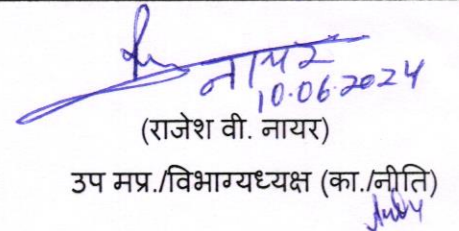 नायर
10.06.2024
(राजेश वी. नायर)
उप मप्र./विभाग्यध्यक्ष (का./नीति)